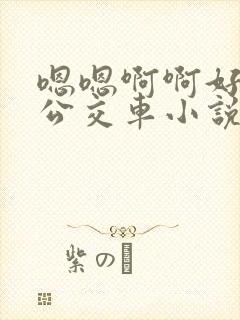 嗯嗯啊啊好
公交車小說
紫の